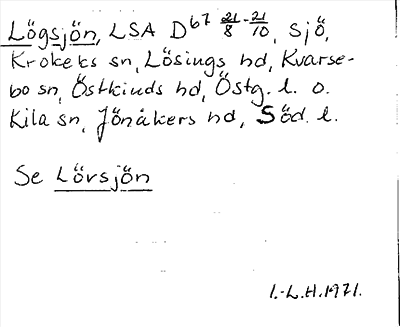 Lögsjön, LSA D67 21/8-21/10, Sjö,
Krokeks sn, Lösings hd, Kvarse-
bo sn, Östkinds hd, Östg. l. o.
Kila sn, Jönåkers hd, Söd. l.
Se Lövsjön
I.-L.H.1971.